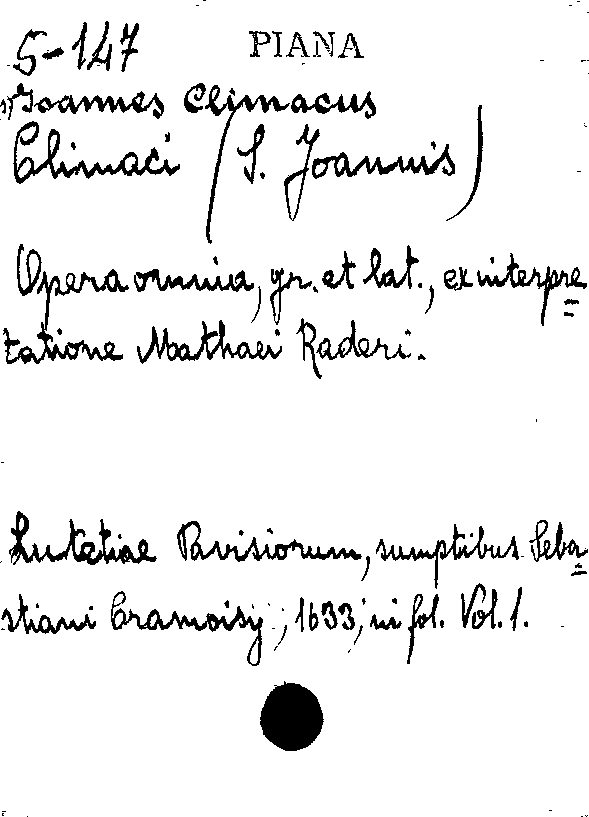 5-147 PIANA
Joannes Climacus
Climaci (S. Joannis)
Opera omnia, gr. et lat., ex interpre=
tatione Mathaei Raderi.
Lutetiae Parisiorum, sumptibus Seba=
stiani Cramoisy, 1633, in fol. Vol. 1.